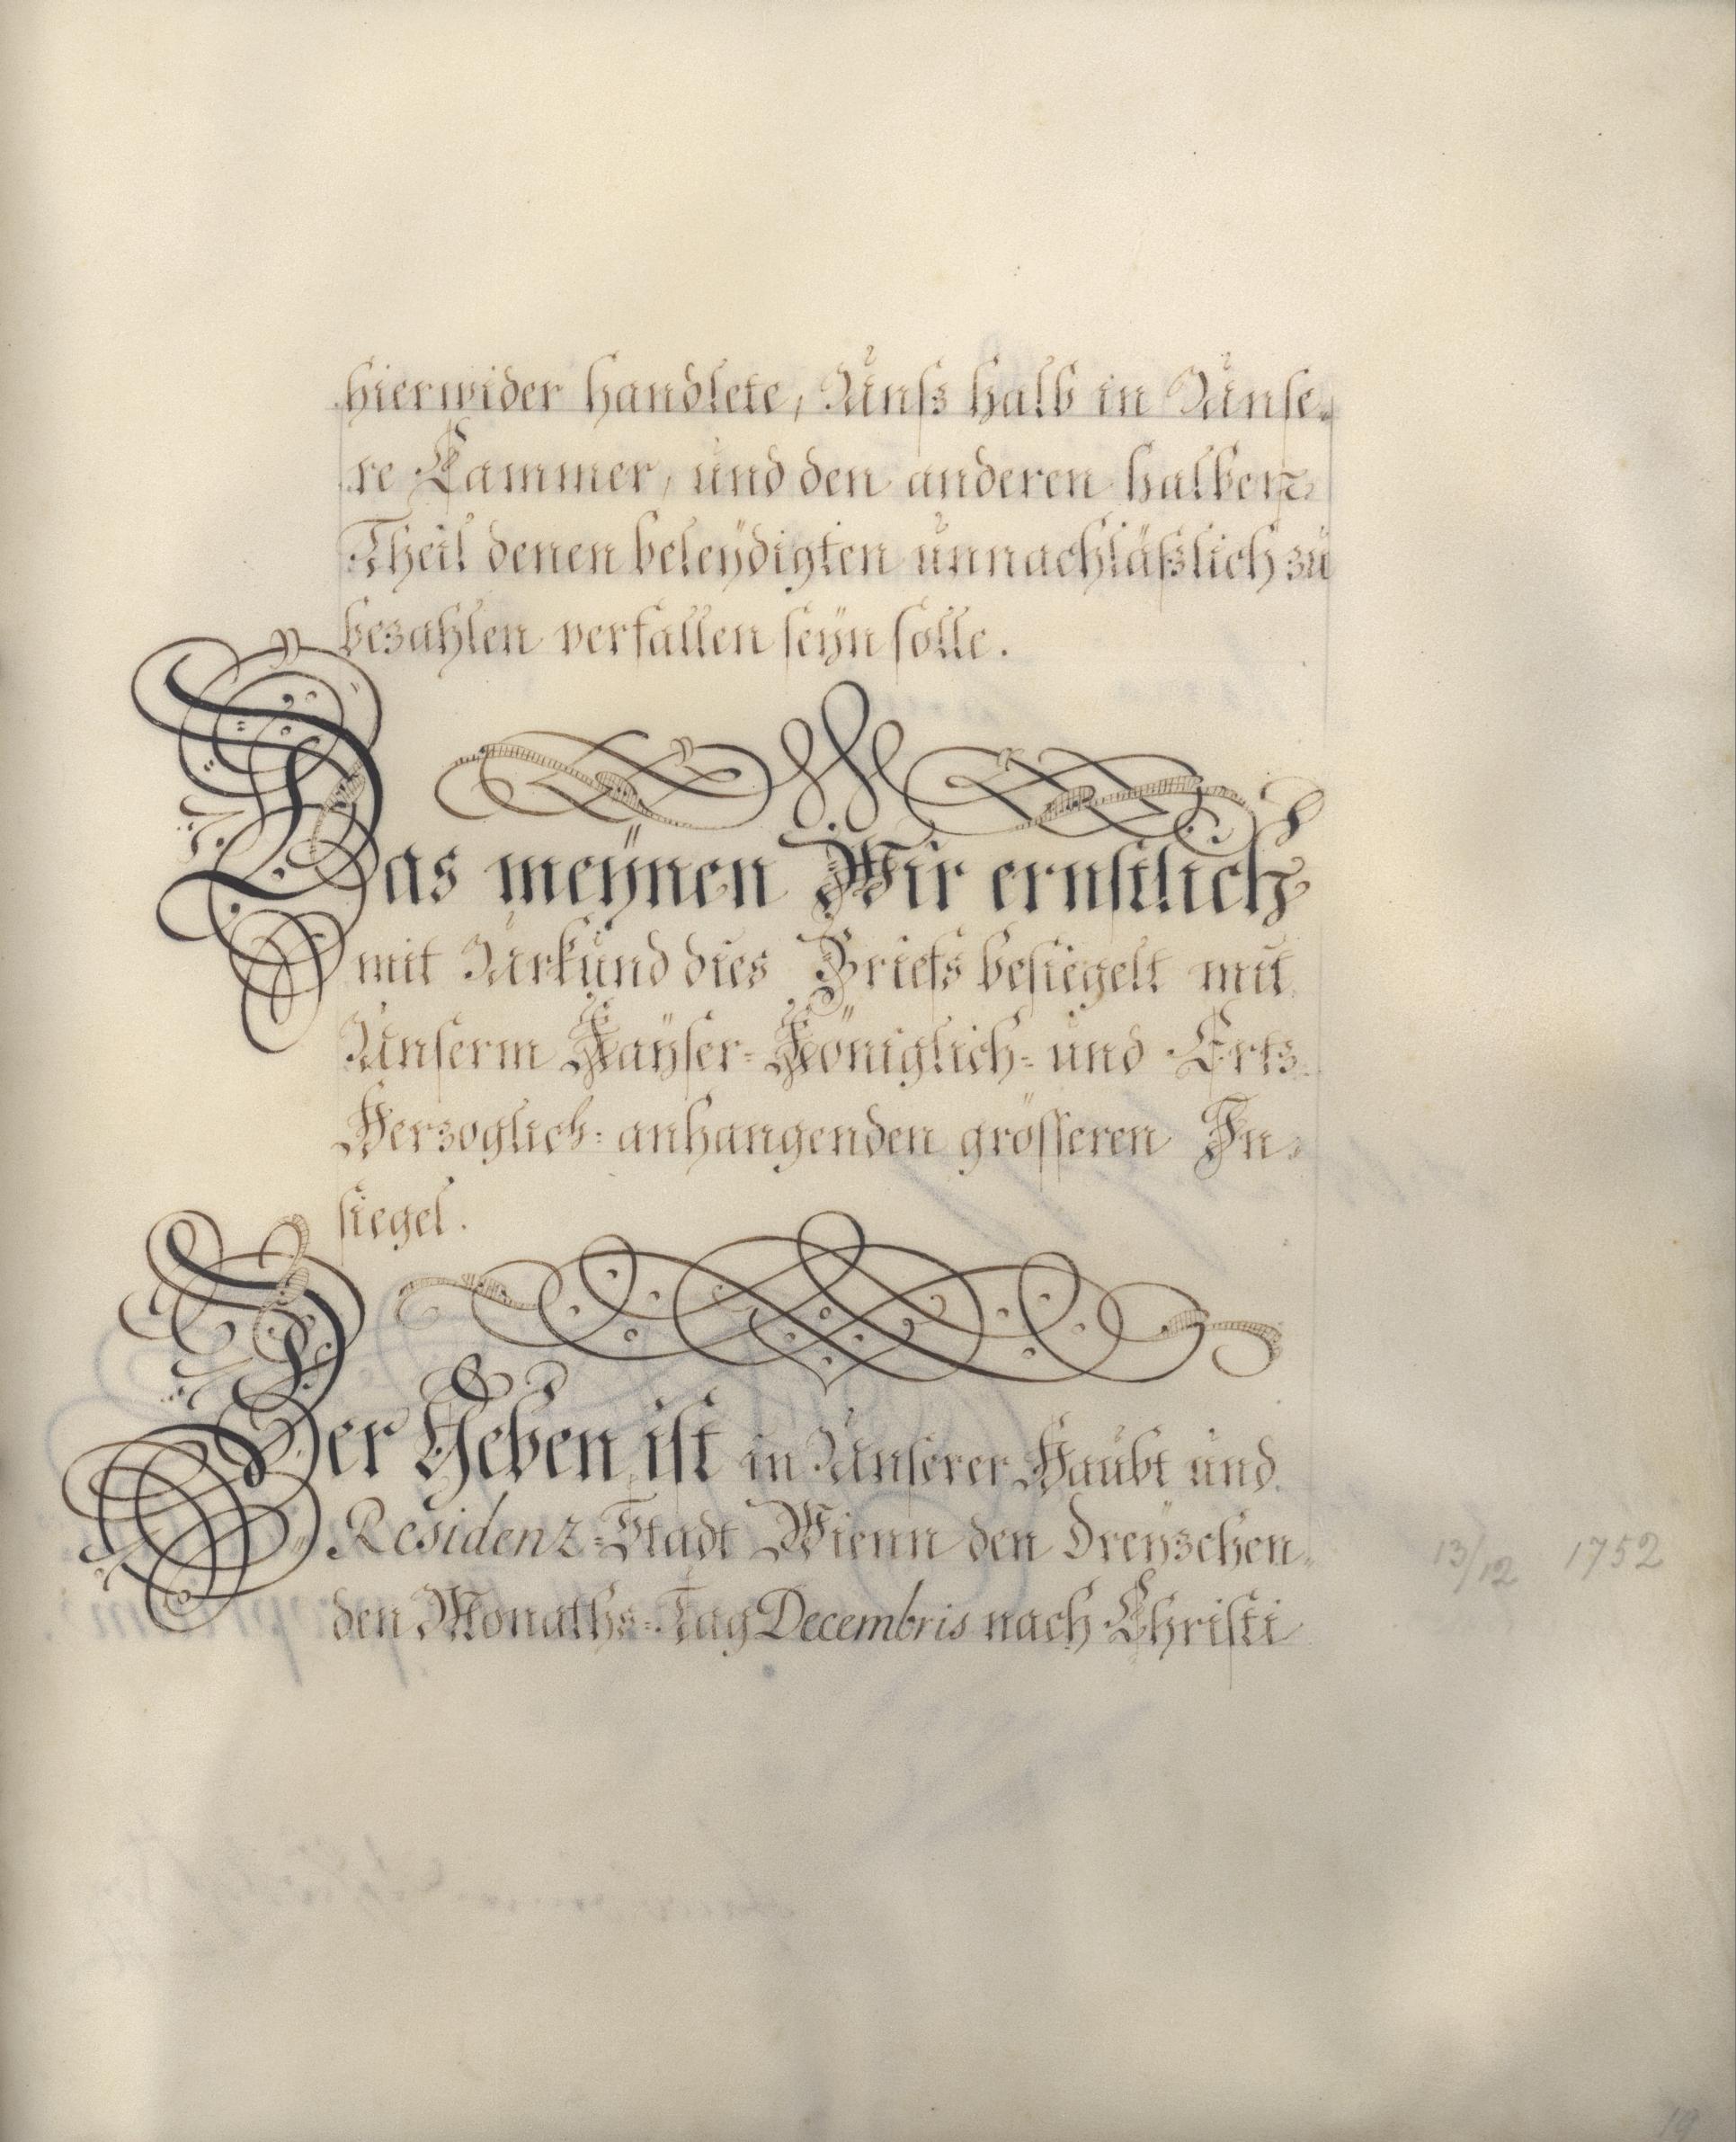 hierwider handlete, Unß halb in Unse-
re Cammer, und den anderen halben
Theil denen beleÿdigten unnachläßlich zu
bezahlen verfallen seÿn solle.
Das meÿnen Wir ernstlich
mit Urkund dies Briefs besiegelt mit
Unserm Kaÿser-Königlich- und Ertz-
Herzoglich-anhangenden grösseren In-
siegel.
Der Geben ist in Unserer Haubt und
Residenz-Stadt Wienn den dreÿzehen-
den Monaths-Tag Decembris nach Christi
13/12 1752
19